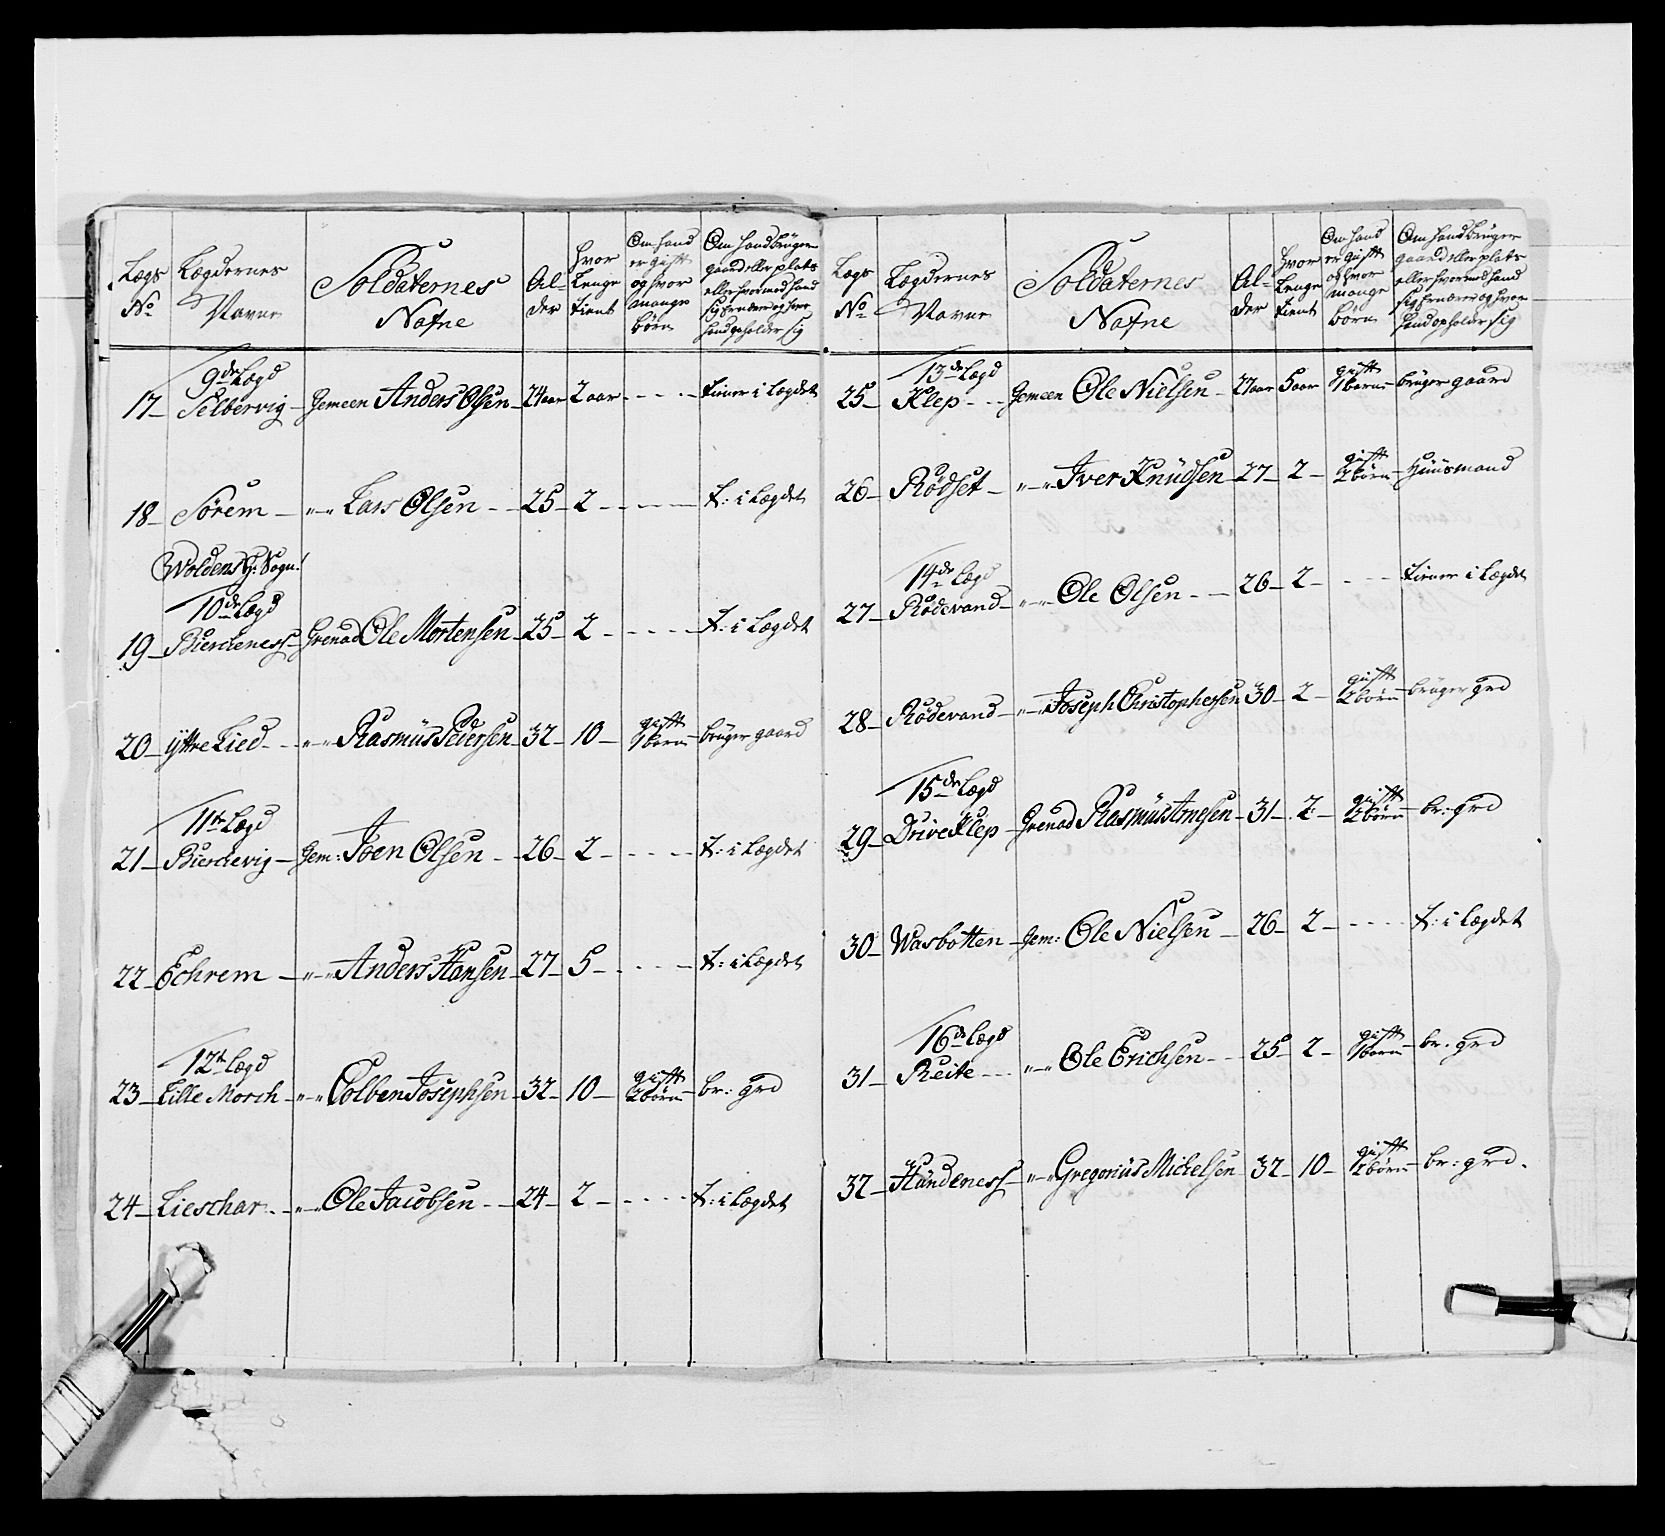 Lægs No | Lægdernes Navne | Soldaternes Nafne | Al- der | hvor Lenge tient | Om hand er gift og hvor mange børn | Om hand brüger gaard eller plats eller hvormed hand sig ernærer og hvor hand opholder sig
9de Lægd
17 – Selbervig – Gemeen Anders Olsen – 24 aar – 2 aar - - - - tiener i Lægdet
18 – Sørem – „ – „ Lars Olsen - - 25 – 2 - - - - t: i Lægdet
Woldens H: Sogn!
10de Lægd
19 – Bierchenes – Grenad Ole Mortensen – 25 – 2 - - - - t: i Lægdet
20 – Yttre Lied - - „ – „ Rasmüs Pedersen – 32 – 10 – gift 1 barn – brüger gaard
11te Lægd
21 – Bierchevig – Gem: Joen Olsen - - 26 – 2 - - - - t: i Lægdet
22 – Echrem – „ – „ Anders Hansen – 27 – 5 - - - - t: i Lægdet
12te Lægd
23 – Lille Morch – „ – „ Colben Josephsen – 32 – 10 – gift 2 børn – br: grd
24 – Lieschar - - „ – „ Ole Jacobsen - - 24 – 2 - - - - t: i Lægdet
Lægs No | Lægdernes Navne | Soldaternes Nafne | Al- der | hvor Lenge tient | Om hand er gift og hvor mange børn | Om hand brüger gaard eller plats eller hvormed hand sig ernærer og hvor hand opholder sig
13de Lægd
25 – Klep - - Gemeen Ole Nielsen – 27 aar 5 aar gift 1 barn – brüger gaard
26 – Rødset – „ – „ Iver Knüdsen – 27 – 2 – gift 2 børn – Hüüsmand
14de Lægd
27 – Rødevand – „ – „ Ole Olsen - - 26 – 2 - - - - tiener i Lægdet
28 – Rødevand – „ – „ Joseph Christophersen 30 – 2 – gift 2 børn – brüger grd
15de Lægd
29 – Drive Klep – Grenad Rasmüs Arnesen – 31 – 2 – gift 2 børn – br: grd
30 – Wasbotten – Gem: Ole Nielsen – 26 – 2 - - - - t: i Lægdet
16de Lægd
31 – Reite - - „ – „ Ole Erichsen - - 25 – 2 – gift 1 barn – br. grd
32 – Hündenes – „ – „ Gregoriüs Michelsen 32 – 10 – gift 2 børn – br: grd.